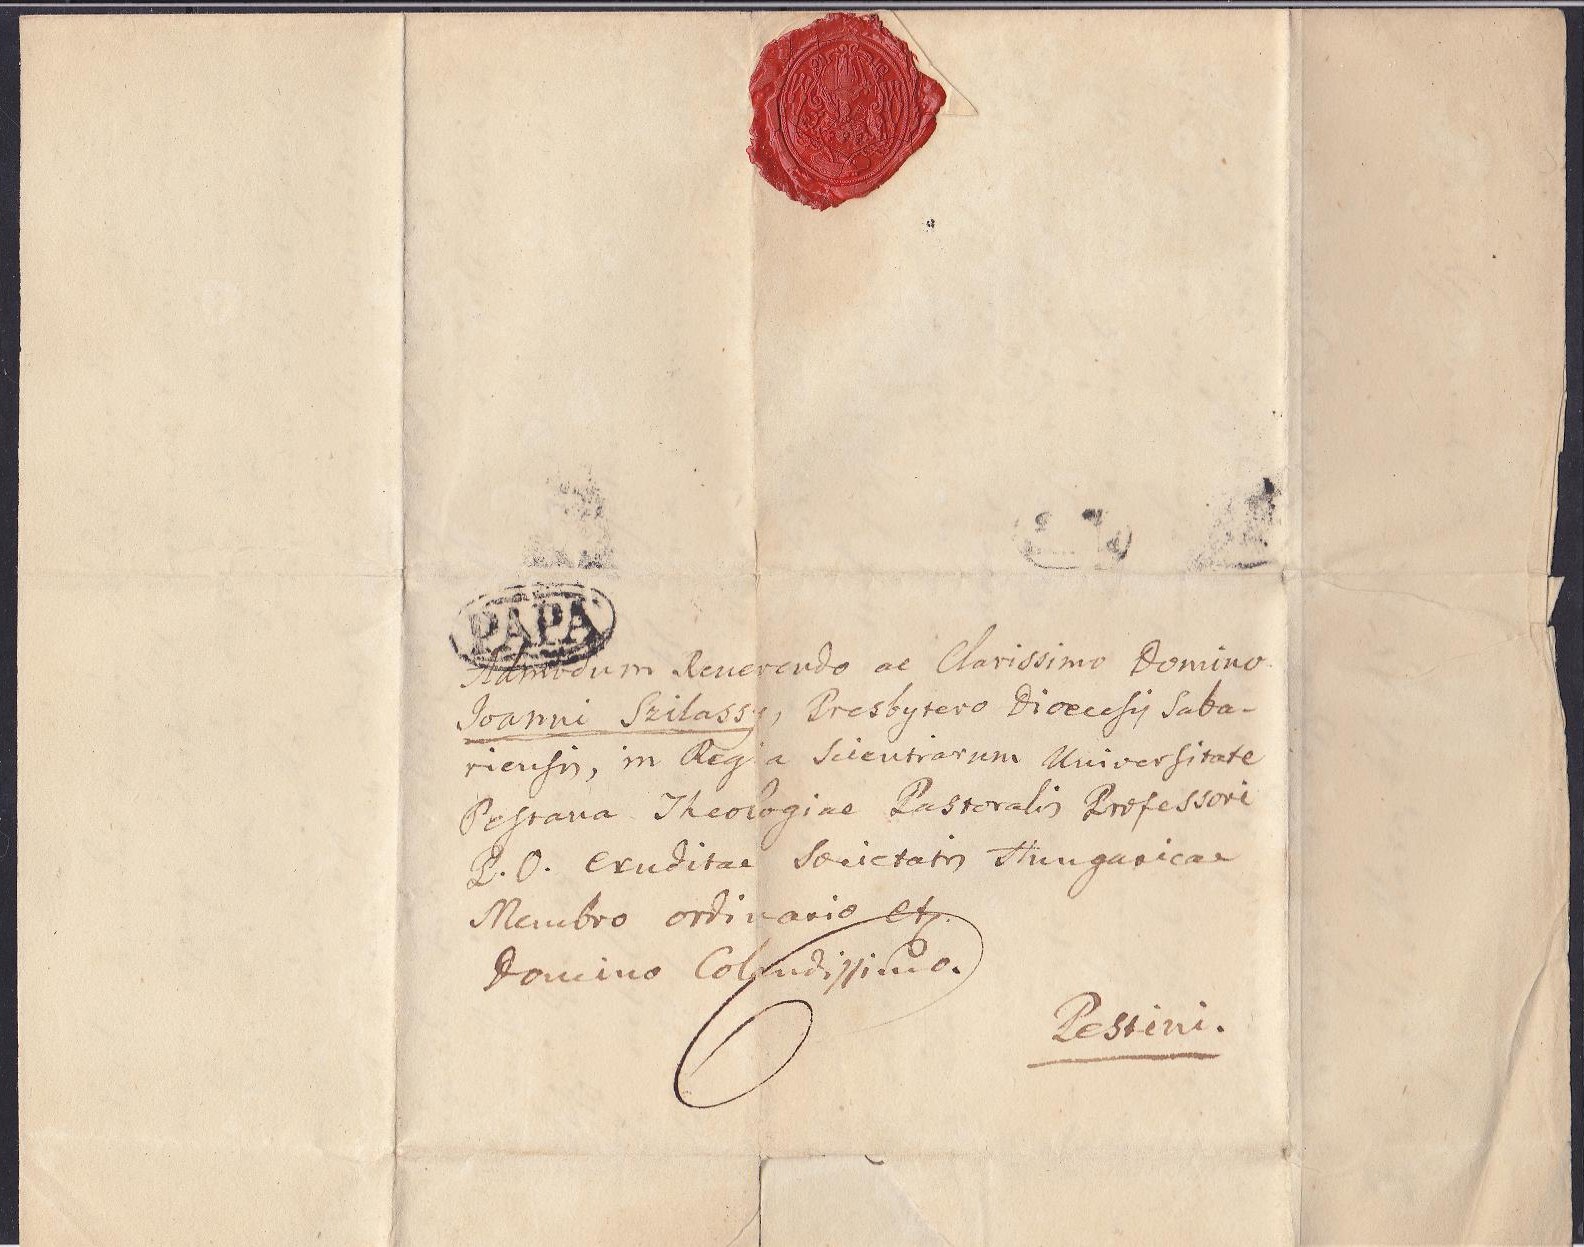 PÁPA
Admodum Reverendo ac Clarissimo Domino
Joanni Szilassy, Presbytero Dioecesis Saba-
riensis, in Regia Scientiarum Universitate
Pestana Theologiae Pastoralis Professori
P. O. Eruditae Societatis Hungaricae
Membro ordinario etc.
Domino Colendissimo.
Pestini.